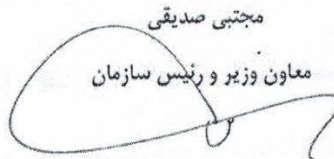 مجتبی صدیقی
معاون وزیر و رئیس سازمان